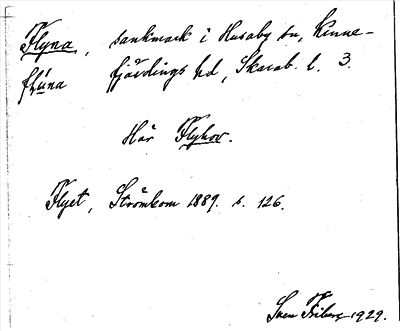 Flyna, sankmark i Husaby sn, Kinne-
flyna fjärdings hd, Skarab. l. 3.
Här Flyhov.
Flyet, Strömbom 1889. s. 126.
Sven Friberg 1929.